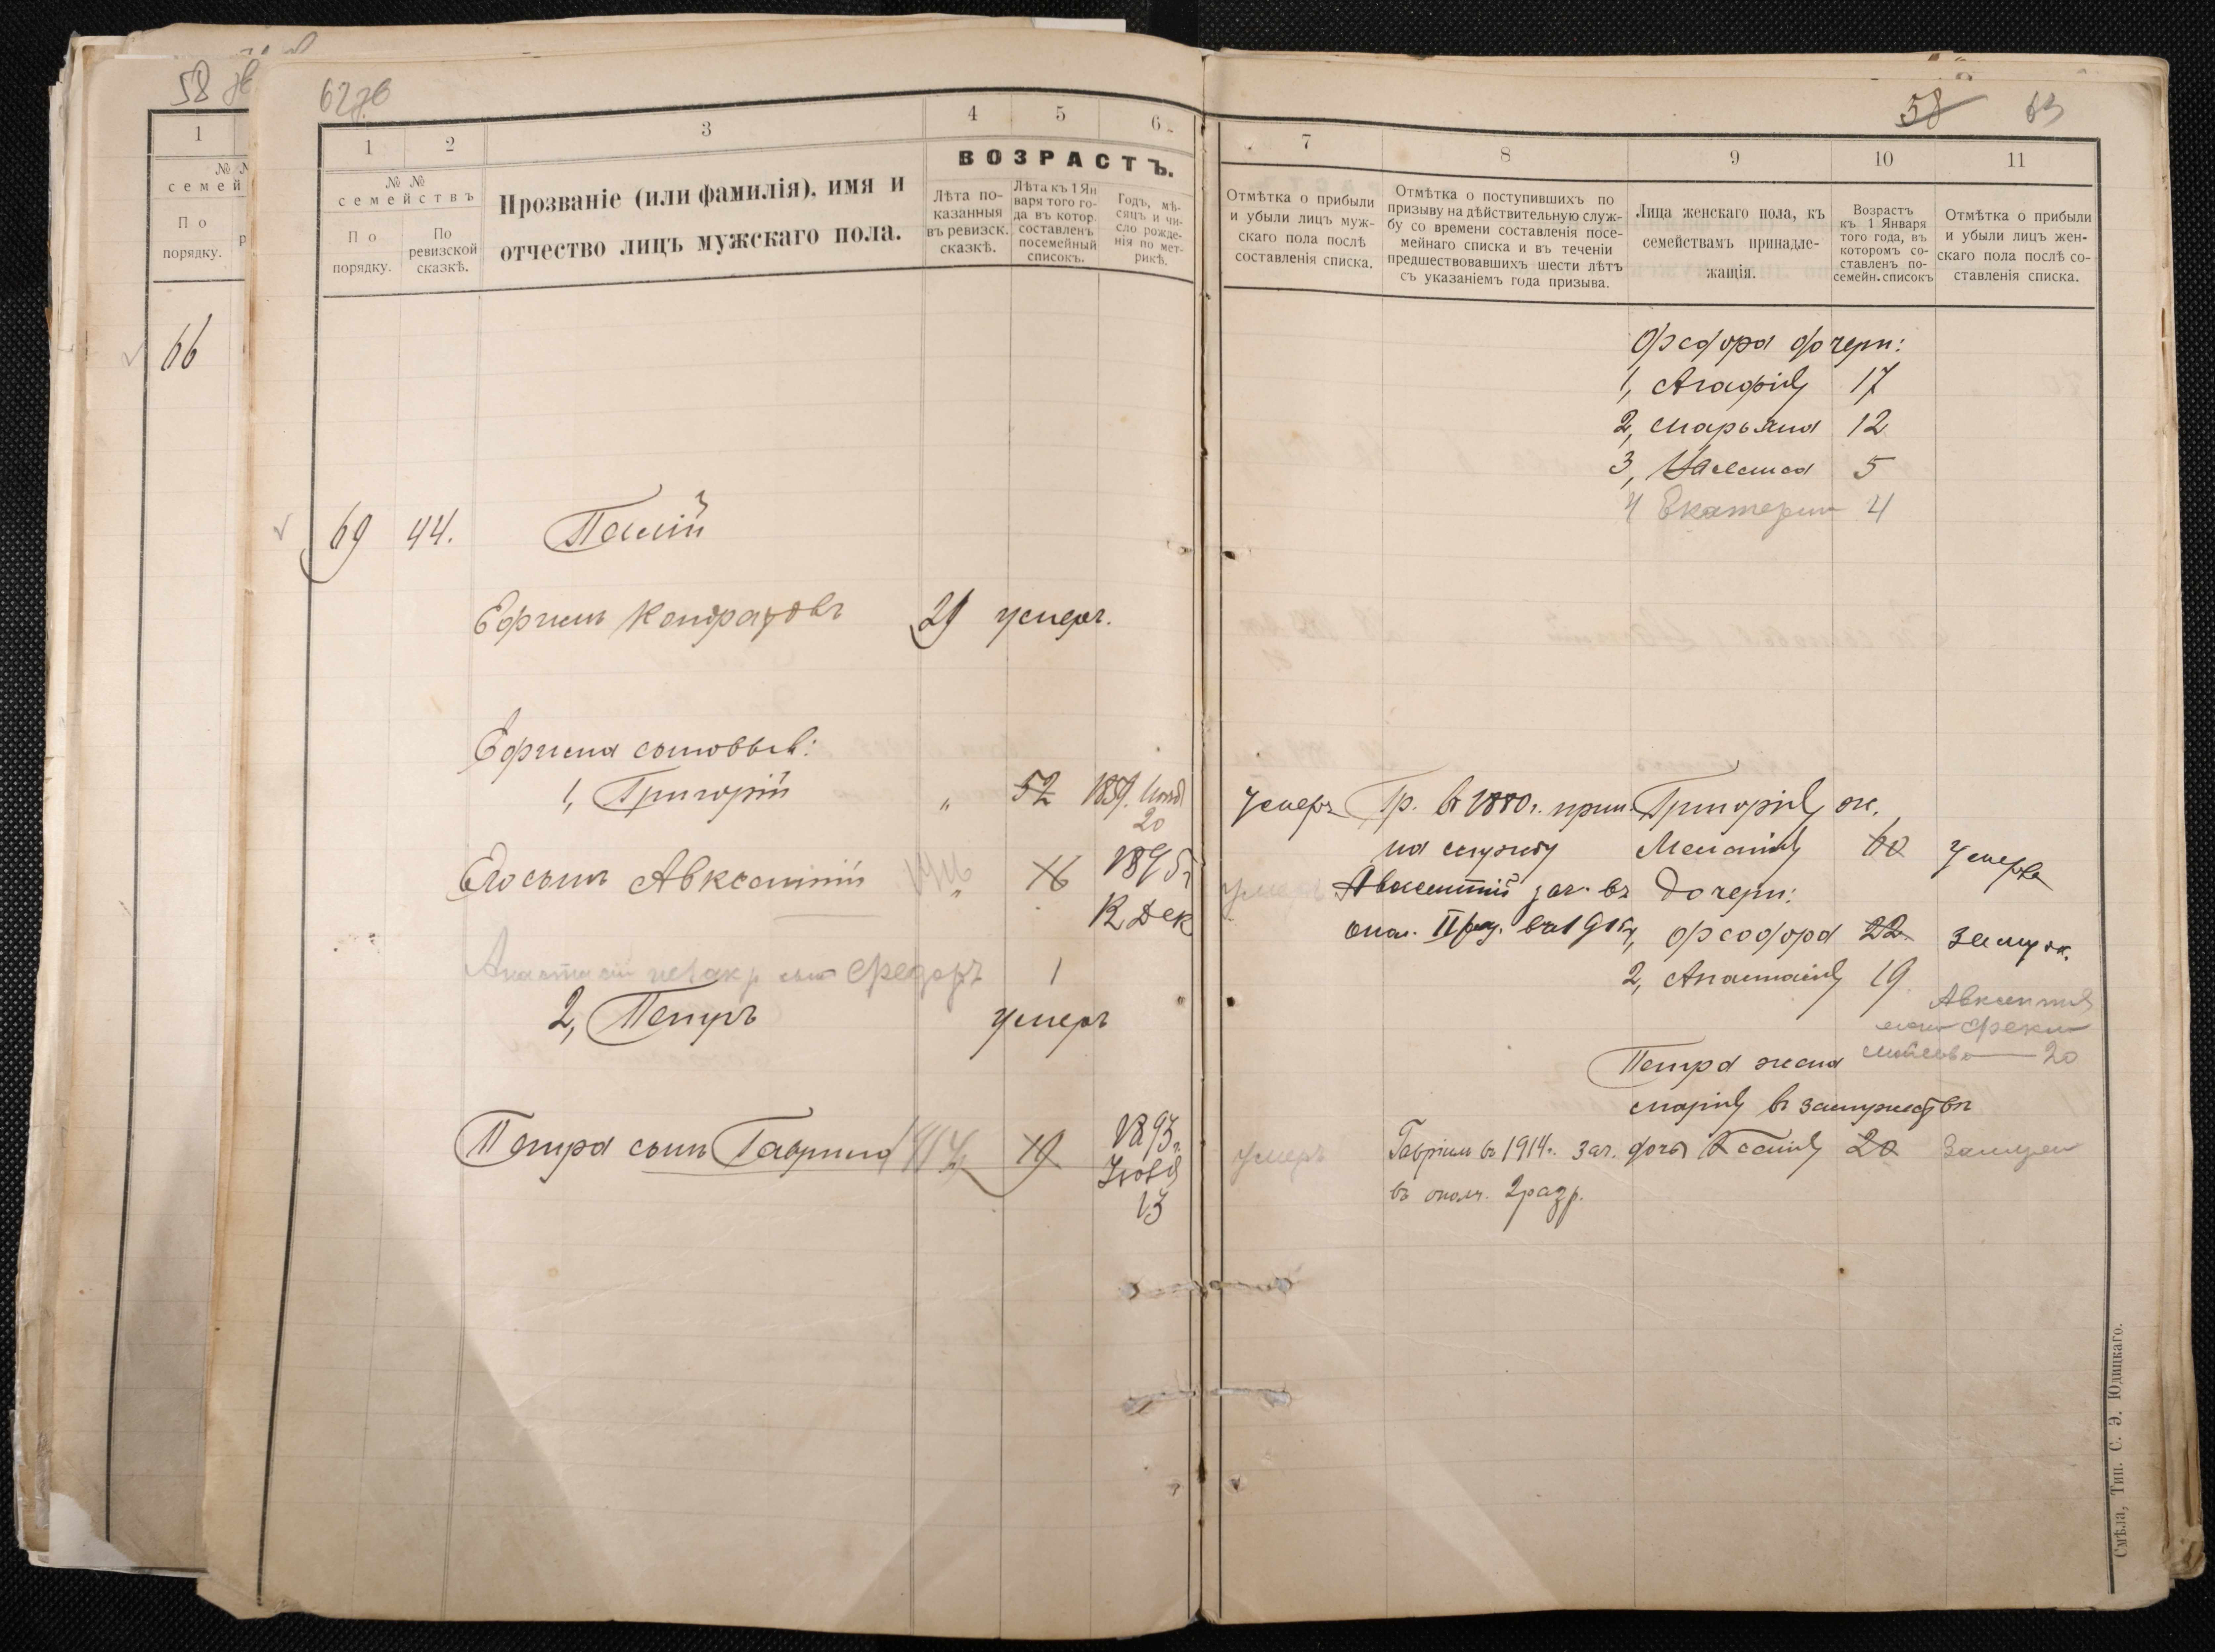 58 зв
1
№ №
семей
По
порядку.
66
62зв
1
2
3
4
5
6
№ №
семействъ
По
порядку.
По
ревизской
сказкѣ.
Прозваніе (или фамилія), имя и
отчество лицъ мужскаго пола.
ВОЗРАСТЪ.
Лѣта по-
казанныя
въ ревизск.
сказкѣ.
Лѣта къ 1 Ян
варя того го-
да въ котор.
составленъ
посемейный
списокъ.
Годъ, мѣ-
сяцъ и чи-
сло рожде-
нія по мет-
рикѣ.
69 44. Палій
Ефимъ Кондратовъ 29 умеръ.
Ефима сыновья:
1, Григорій " 52 1859. Нояб
20
Его сынъ Авксентій " 16 1895г
12 Дек
сын Федоръ 1
2, Петръ умеръ
Петра сынъ Гавриил 1914 19 1893г
Іюля
13
58 63
7
8
9
10
11
Отмѣтка о прибыли
и убыли лицъ муж-
скаго пола послѣ
составленія списка.
Отмѣтка о поступившихъ по
призыву на дѣйствительную служ-
бу со времени составленія посе-
мейнаго списка и въ теченіи
предшествовавшихъ шести лѣтъ
съ указаніемъ года призыва.
Лица женскаго пола, къ
семействамъ принадле-
жащія.
Возрастъ
къ 1 Января
того года, въ
которомъ со-
ставленъ по-
семейн. списокъ
Отмѣтка о прибыли
и убыли лицъ жен-
скаго пола послѣ со-
ставленія списка.
Федора дочери:
1, Агафія 17
2, Марьяна 12
3, 5
4 Екатерин 4
умеръ Гр. въ 1880г. прин. Григорія ж.
на службу Меланія 60 умерла
умеръ Авксентій зач. въ дочери:
опол. II раз. въ 1916г 1, Феодора 22 замуж.
2, Анастасія 19
Авксентия
жена Фекла
20
Петра жена
Марія въ замужествѣ
умеръ Гавріилъ въ 1914г. зач. дочь Ксенія 20 Замуж
въ ополч. 2 разр.
Смѣла, Тип. С. Э. Юдицкаго.